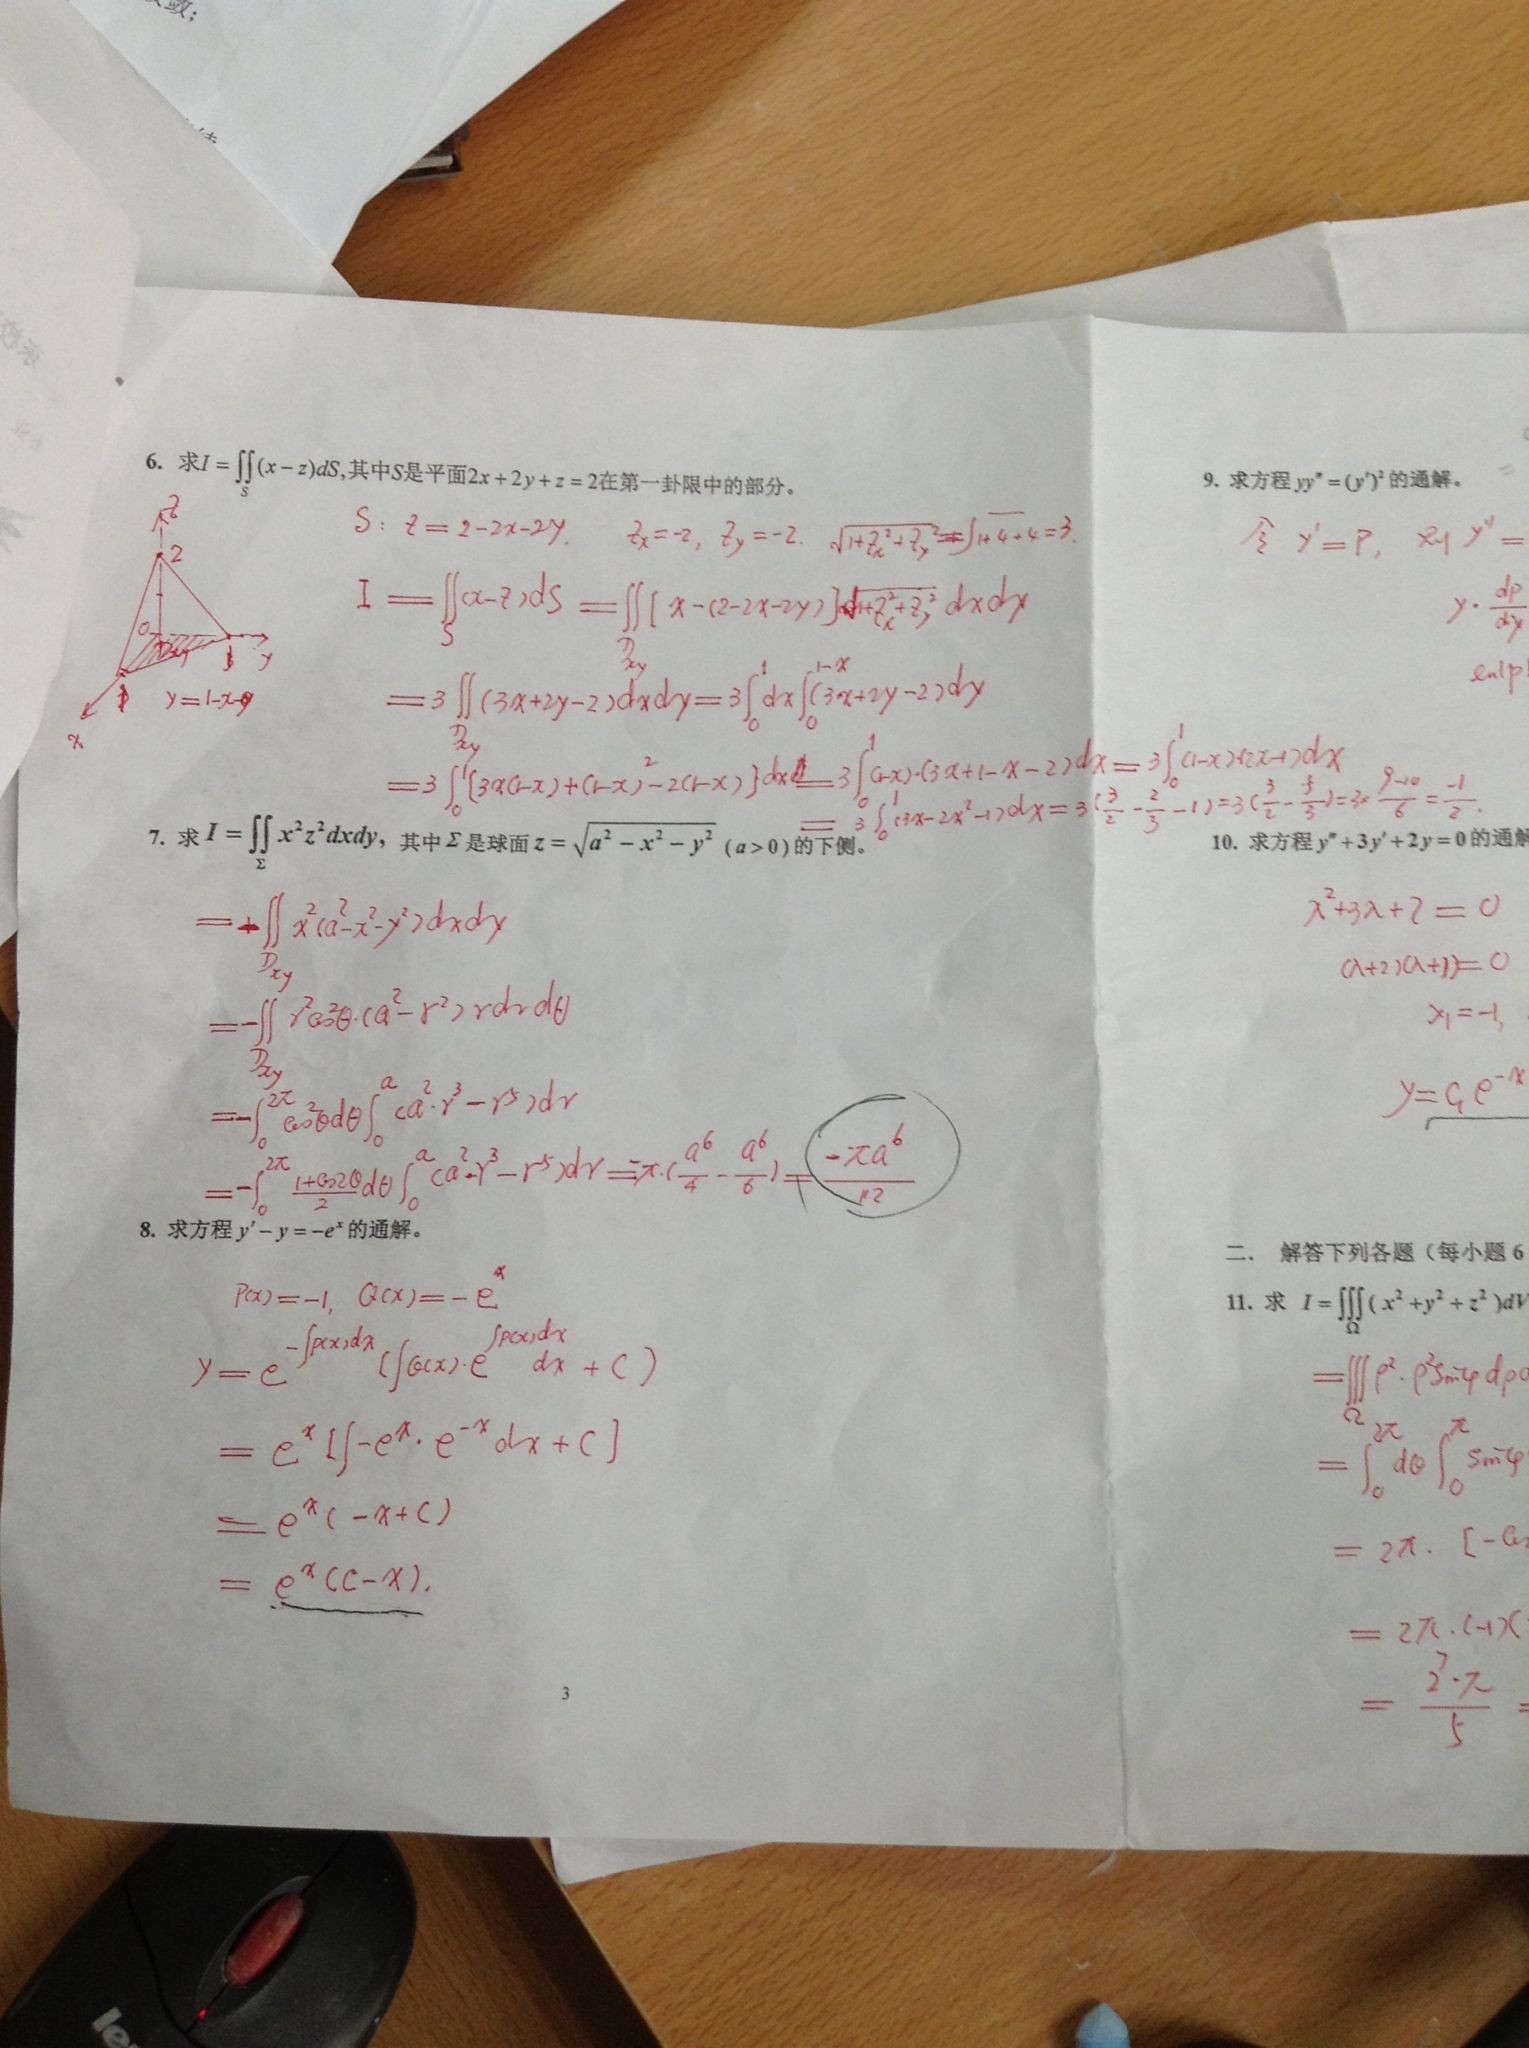 敛；
6. 求I = ∬_S (x − z)dS, 其中S是平面2x + 2y + z = 2在第一卦限中的部分。
S: z = 2-2x-2y. z_x = -2, z_y = -2. √(1+z_x²+z_y²) = √(1+4+4) = 3.
I = ∬_S (x-z)dS = ∬_{D_xy} [x-(2-2x-2y)]√(1+z_x²+z_y²) dxdy
= 3∬_{D_xy} (3x+2y-2)dxdy = 3∫_0^1 dx ∫_0^{1-x} (3x+2y-2)dy
= 3∫_0^1 [3x(1-x)+(1-x)²-2(1-x)]dx = 3∫_0^1 (1-x)·(3x+1-x-2)dx = 3∫_0^1 (1-x)(2x-1)dx
= 3∫_0^1 (3x-2x²-1)dx = 3(3/2 - 2/3 - 1) = 3(3/2 - 5/3) = 3× (9-10)/6 = -1/2.
z
2
0
D_xy
1
y
1
y=1-x
x
7. 求 I = ∬_Σ x²z²dxdy, 其中Σ是球面 z = √(a² − x² − y²) (a > 0) 的下侧。
= -∬_{D_xy} x²(a²-x²-y²)dxdy
= -∬_{D_xy} r²cos²θ·(a²-r²)rdrdθ
= -∫_0^{2π} cos²θdθ ∫_0^a (a²·r³-r⁵)dr
= -∫_0^{2π} (1+cos2θ)/2 dθ ∫_0^a (a²·r³-r⁵)dr = -π·(a⁶/4 - a⁶/6) = -πa⁶/12
8. 求方程 y′ − y = −eˣ 的通解。
P(x) = -1, Q(x) = -eˣ
y = e^{-∫P(x)dx} (∫Q(x)·e^{∫P(x)dx} dx + C)
= eˣ[∫-eˣ·e⁻ˣdx + C]
= eˣ(-x+C)
= eˣ(C-x).
3
9. 求方程 yy″ = (y′)² 的通解。
令 y′ = P, 则 y″ =
y· dp/dy
en|p|
10. 求方程 y″ + 3y′ + 2y = 0 的通解
λ²+3λ+2 = 0
(λ+2)(λ+1) = 0
λ₁ = -1,
y = C₁e⁻ˣ
二. 解答下列各题（每小题 6
11. 求 I = ∭_Ω (x² + y² + z²)dV
= ∭_Ω ρ²·ρ²sinφdρd
= ∫_0^{2π} dθ ∫_0^π sinφ
= 2π·[-cos
= 2π·(-1)(
= 2⁷·π/5 =